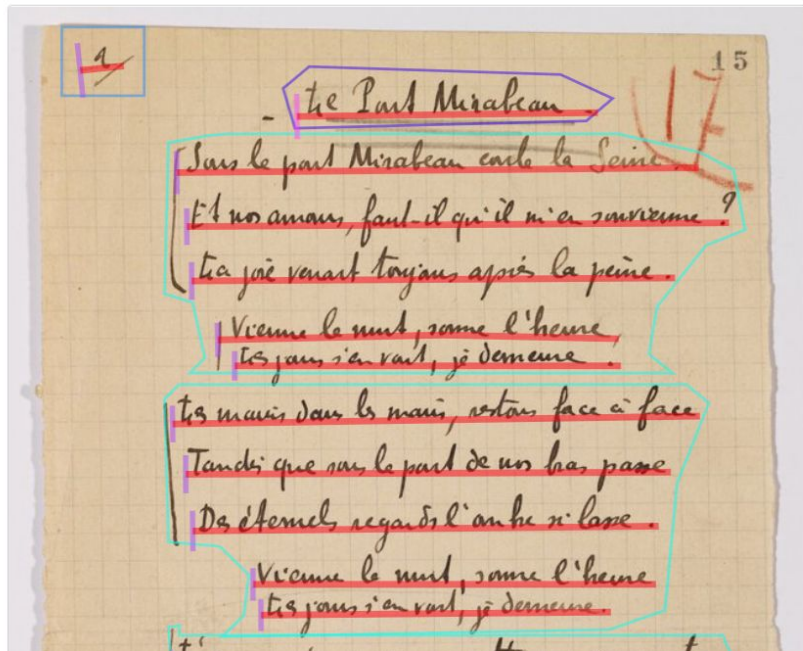 15
17
Le Pont Mirabeau.
Sous le pont Mirabeau coule la Seine.
Et nos amours, faut-il qu'il m'en souvienne ?
La joie venait toujours après la peine.
Vienne la nuit, sonne l'heure,
Les jours s'en vont, je demeure.
Les mains dans les mains, restons face à face
Tandis que sous le pont de nos bras passe
Des éternels regards l'onde si lasse.
Vienne la nuit, sonne l'heure
Les jours s'en vont, je demeure.